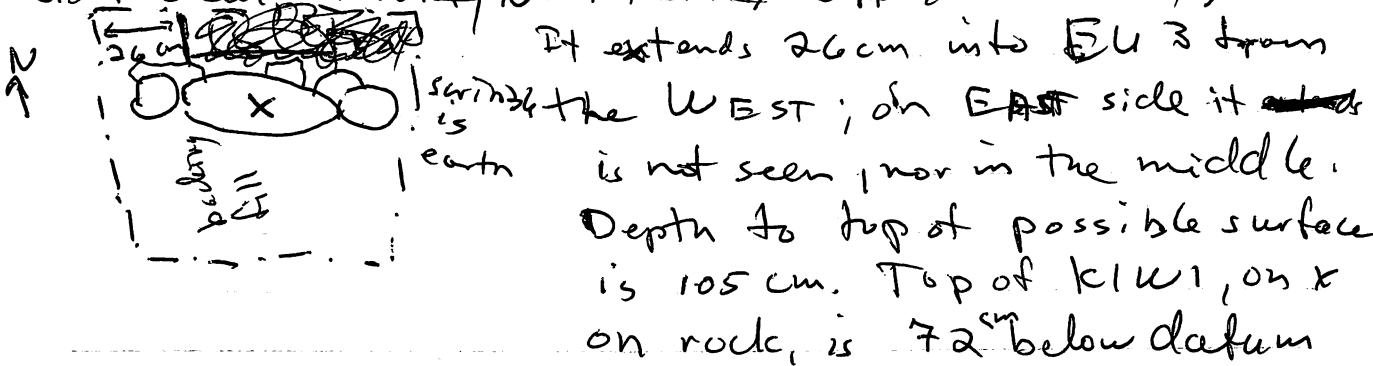 26 cm
N
is
earth
It extends 26cm into EU 3 from
the WEST; on EAST side it
is not seen, nor in the middle.
Depth to top of possible surface
is 105 cm. Top of K1W1, on x
on rock, is 72 cm below datum